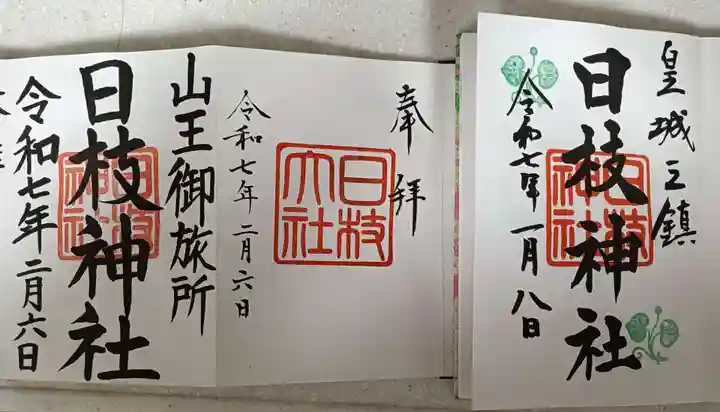 皇城之鎮
日枝神社
日枝
神社
令和七年一月八日
奉拝
日枝
大社
令和七年二月六日
山王御旅所
日枝神社
日枝
神社
令和七年二月六日